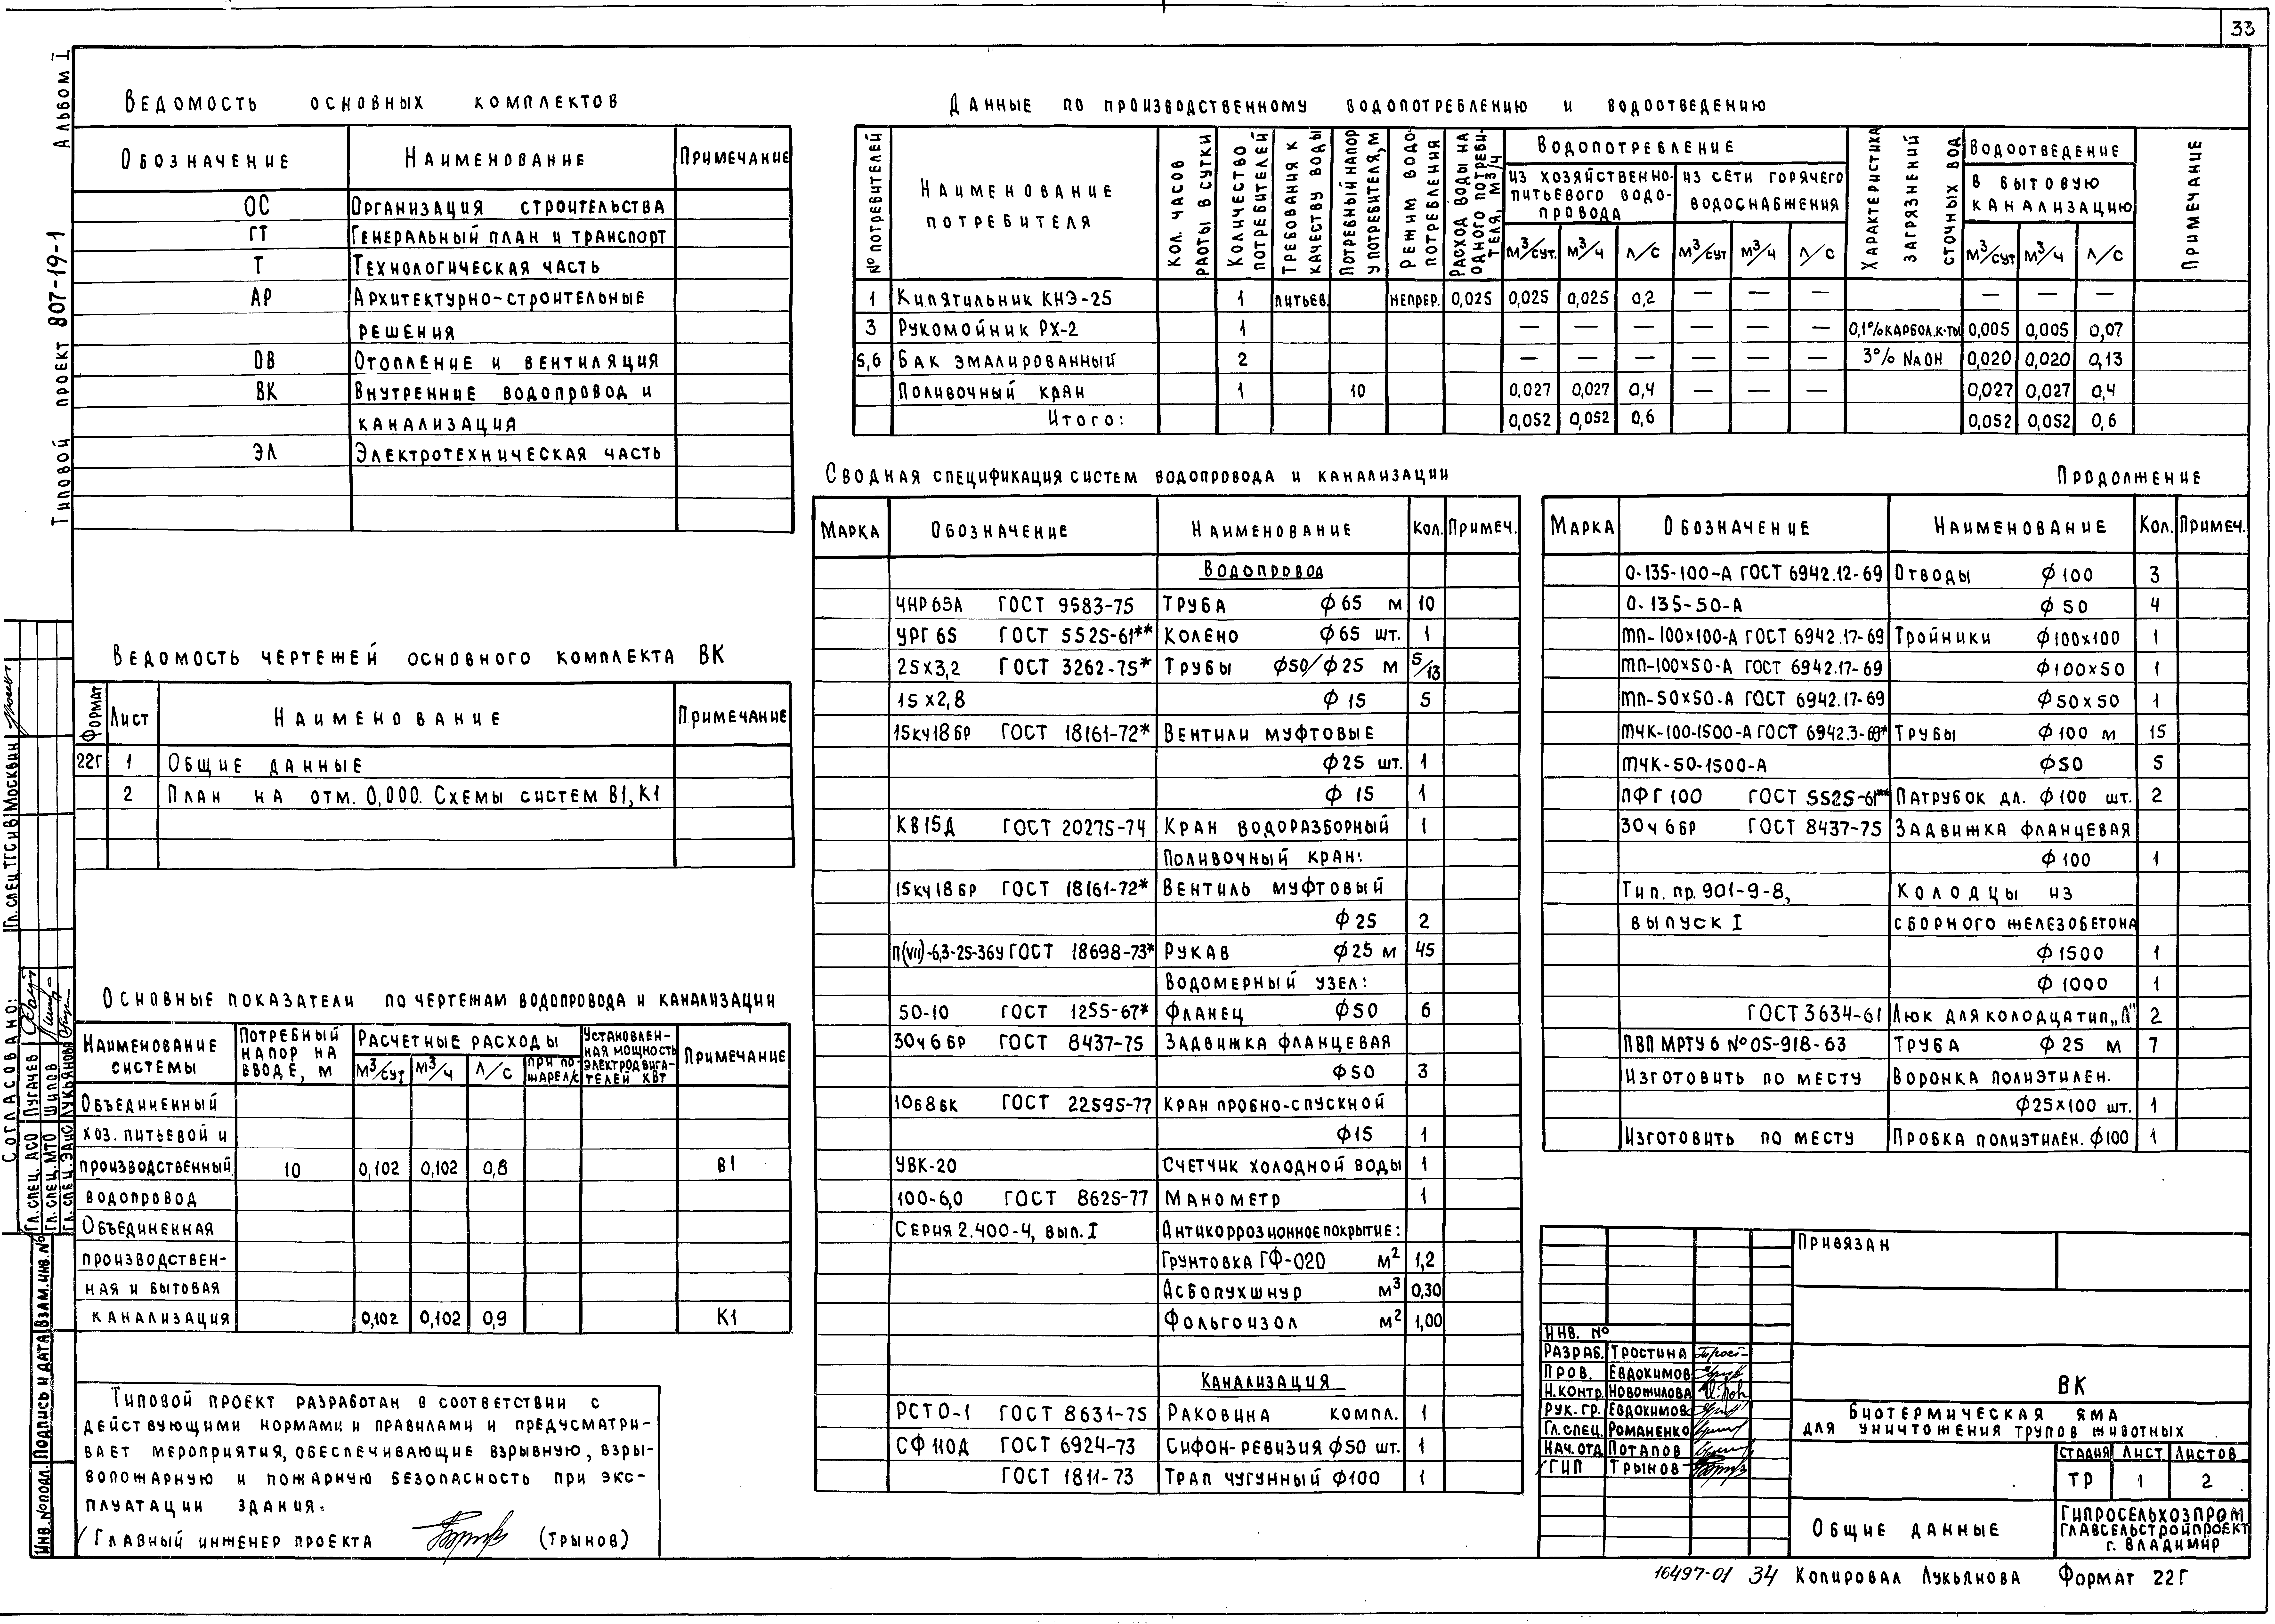 33
Альбом I
Типовой проект 807-19-1
Ведомость основных комплектов
Обозначение Наименование Примечание
ОС Организация строительства
ГТ Генеральный план и транспорт
Т Технологическая часть
АР Архитектурно-строительные
решения
ОВ Отопление и вентиляция
ВК Внутренние водопровод и
канализация
ЭЛ Электротехническая часть
Ведомость чертежей основного комплекта ВК
Формат Лист Наименование Примечание
22Г 1 Общие данные
2 План на отм. 0,000. Схемы систем В1, К1
Основные показатели по чертежам водопровода и канализации
Наименование системы
Потребный напор на вводе, м
Расчетные расходы
м³/сут м³/ч л/с при пожаре л/с
Установленная мощность электродвигателей кВт
Примечание
Объединенный
хоз. питьевой и
производственный 10 0,102 0,102 0,8 В1
водопровод
Объединенная
производствен-
ная и бытовая
канализация 0,102 0,102 0,9 К1
Типовой проект разработан в соответствии с
действующими нормами и правилами и предусматри-
вает мероприятия, обеспечивающие взрывную, взры-
вопожарную и пожарную безопасность при экс-
плуатации здания.
Главный инженер проекта (Трынов)
Данные по производственному водопотреблению и водоотведению
№ потребителей
Наименование
потребителя
Кол. часов работы в сутки
Количество потребителей
Требования к качеству воды
Потребный напор у потребителя, м
Режим водопотребления
Расход воды на одного потребителя, м3/ч
Водопотребление
из хозяйственно-
питьевого водо-
провода
из сети горячего
водоснабжения
м³/сут. м³/ч л/с м³/сут м³/ч л/с
Характеристика загрязнений сточных вод
Водоотведение
в бытовую
канализацию
м³/сут м³/ч л/с
Примечание
1 Кипятильник КНЭ-25 1 питьев. непрер. 0,025 0,025 0,025 0,2 — — — — — —
3 Рукомойник РХ-2 1 — — — — — — 0,1% карбол. к-ты 0,005 0,005 0,07
5,6 Бак эмалированный 2 — — — — — — 3% NaOH 0,020 0,020 0,13
Поливочный кран 1 10 0,027 0,027 0,4 — — — 0,027 0,027 0,4
Итого: 0,052 0,052 0,6 0,052 0,052 0,6
Сводная спецификация систем водопровода и канализации
Марка Обозначение Наименование Кол. Примеч.
Водопровод
ЧНР 65А ГОСТ 9583-75 Труба ф 65 м 10
УРГ 65 ГОСТ 5525-61** Колено ф 65 шт. 1
25х3,2 ГОСТ 3262-75* Трубы ф50/ф25 м 5/13
15х2,8 ф 15 5
15кч18бр ГОСТ 18161-72* Вентили муфтовые
ф25 шт. 1
ф 15 1
КВ15Д ГОСТ 20275-74 Кран водоразборный 1
Поливочный кран:
15кч18бр ГОСТ 18161-72* Вентиль муфтовый
ф 25 2
П(VII)-6,3-25-36У ГОСТ 18698-73* Рукав ф 25 м 45
Водомерный узел:
50-10 ГОСТ 1255-67* Фланец ф50 6
30ч6бр ГОСТ 8437-75 Задвижка фланцевая
ф50 3
10Б8бк ГОСТ 22595-77 Кран пробно-спускной
ф15 1
УВК-20 Счетчик холодной воды 1
100-6,0 ГОСТ 8625-77 Манометр 1
Серия 2.400-4, вып. I Антикоррозионное покрытие:
Грунтовка ГФ-020 м² 1,2
Асбопухшнур м³ 0,30
Фольгоизол м² 1,00
Канализация
РСТО-1 ГОСТ 8631-75 Раковина компл. 1
СФ 110Д ГОСТ 6924-73 Сифон-ревизия ф50 шт. 1
ГОСТ 1811-73 Трап чугунный ф100 1
Продолжение
Марка Обозначение Наименование Кол. Примеч.
О-135-100-А ГОСТ 6942.12-69 Отводы ф 100 3
О-135-50-А ф 50 4
тп-100х100-А ГОСТ 6942.17-69 Тройники ф100х100 1
тп-100х50-А ГОСТ 6942.17-69 ф100х50 1
тп-50х50-А ГОСТ 6942.17-69 ф50х50 1
тчк-100-1500-А ГОСТ 6942.3-69* Трубы ф 100 м 15
тчк-50-1500-А ф50 5
ПФГ 100 ГОСТ 5525-61** Патрубок дл. ф100 шт. 2
30ч6бр ГОСТ 8437-75 Задвижка фланцевая
ф 100 1
Тип. пр. 901-9-8, Колодцы из
выпуск I сборного железобетона
ф 1500 1
ф 1000 1
ГОСТ 3634-61 Люк для колодца тип „Л" 2
ПВП МРТУ 6 № 05-918-63 Труба ф 25 м 7
Изготовить по месту Воронка полиэтилен.
ф25х100 шт. 1
Изготовить по месту Пробка полиэтилен. ф100 1
Привязан
Инв. №
Разраб. Тростина
Пров. Евдокимов
Н.контр. Новожилова
Рук. гр. Евдокимов
Гл. спец. Романенко
Нач. отд Потапов
ГИП Трынов
ВК
Биотермическая яма
для уничтожения трупов животных
Стадия Лист Листов
ТР 1 2
Общие данные
Гипросельхозпром
Главсельстройпроект
г. Владимир
16497-01 34 Копировал Лукьянова Формат 22Г
Согласовано:
Гл. спец. АСО Пугачев
Гл. спец. МТО Шилов
Гл. спец. ЭАиС Лукьянова
Гл. спец. ТГС и В Москвин
Инв. № подл. Подпись и дата Взам. инв. №